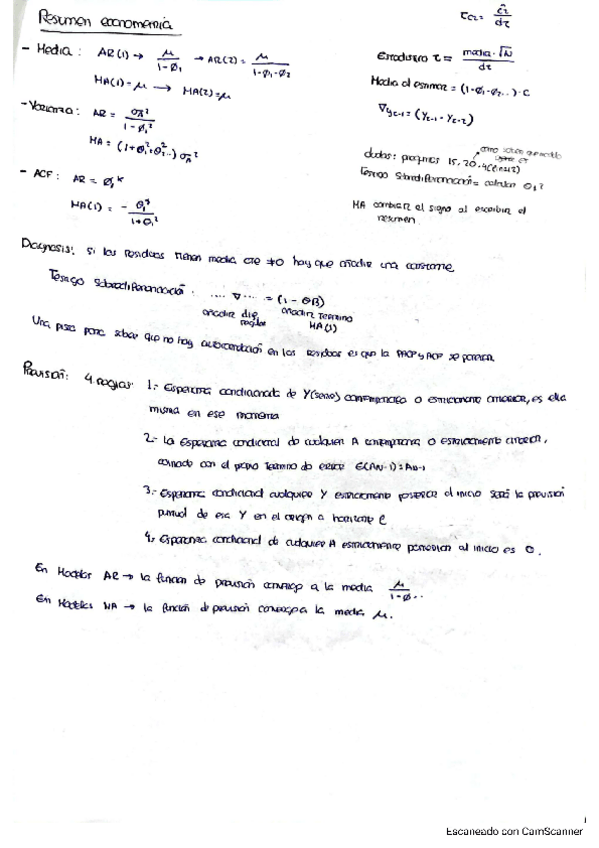 Resumen econometria
- Media: AR(1) → μ/(1-Ø₁) → AR(2) = μ/(1-Ø₁-Ø₂)
MA(1) = μ → MA(2) = μ
- Varianza: AR = σₐ²/(1-Ø₁²)
MA = (1+Θ₁²+Θ₂²..) σₐ²
- ACF: AR = Ø₁ᴷ
MA(1) =
Estadistico τ = media·√N
Media al estimar = (1-Ø₁-Ø₂..)·C
∇yₜ₋₁ = (Yₜ₋₁ - Yₜ₋₂)
dudas: preguntas 15, 20,
Testigo Sobrediferenciación = calcular
MA cambiar el signo al escribir el
resumen
Diagnosis: si los residuos tienen media cte ≠0 hay que añadir una constante
Testigo Sobrediferenciación: .... ∇.... = (1-ΘB)
añadir dif regular
añadir termino MA(1)
Una pista para saber que no hay autocorrelación en los residuos es que la PACF y ACF se parecen
Previsión: 4 reglas: 1.- Esperanza condicionada de Y(serie) contemporanea o estrictamente anterior, es ella
misma en ese momento
2.- La Esperanza condicional de cualquier A contemporanea o estrictamente anterior,
con el termino de error E(AN-1) = AN-1
3.- Esperanza condicional cualquier Y estrictamente posterior al inicio será la previsión
puntual de esa Y en el origen a horizonte ℓ
4.- Esperanza condicional de cualquier A estrictamente posterior al inicio es 0.
En Modelos AR → la función de previsión converge a la media μ/(1-Ø..)
En Modelos MA → la función de previsión converge a la media μ.
Escaneado con CamScanner